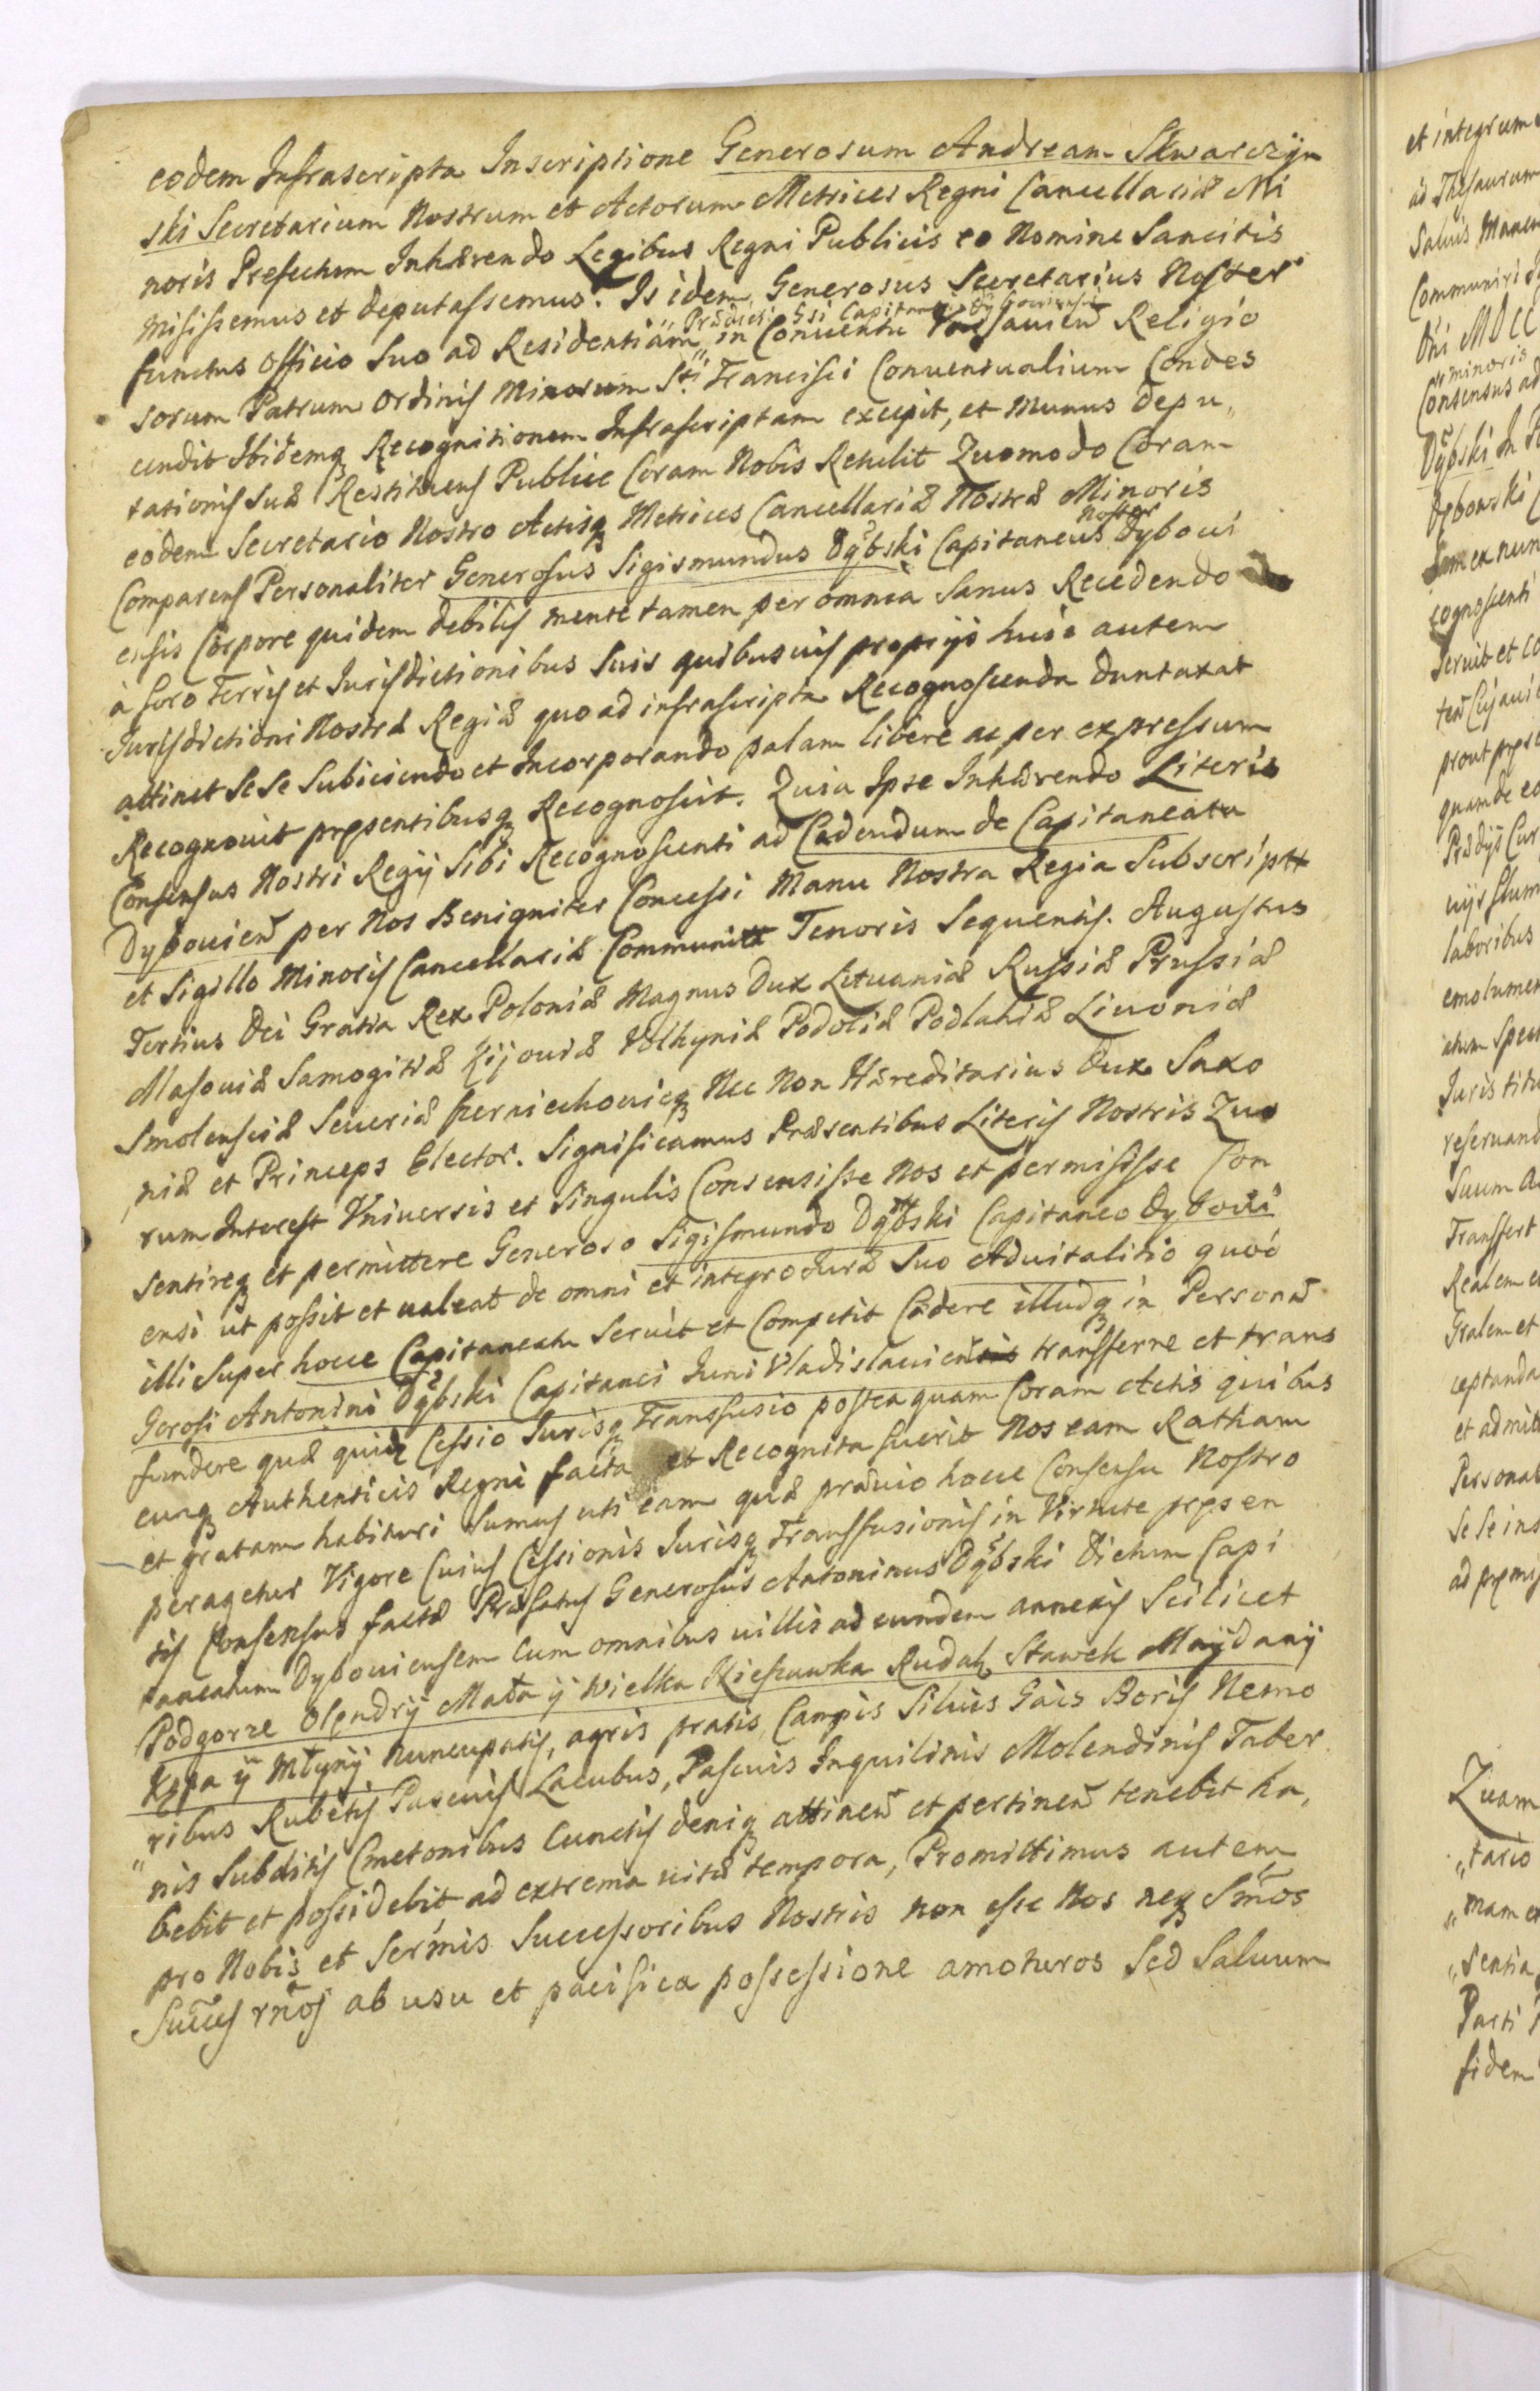 eodem Infrascripta Inscriptione Generosum Andream Skwarczyn
ski Secretarium Nostrum et Actorum Metrices Regni Cancellariæ Mi
noris Prefectum Inhærendo Legibus Regni Publicis eo Nomine Sancitis
misissemus et deputassemus. Is idem Generosus Secretarius Noster
Prædicti Gsi Capitanei Dybouiensis
functus officio suo ad Residentiam in Conuentu Varsauien̄ Religio
sorum Patrum Ordinis Minorum Sti Francisci Conuentualium Condes
cendit Ibidemq Recognitionem Infrascriptam excepit, et Munus depu„
tationis suæ Restituens Publice Coram Nobis Retulit Quomodo Coram
eodem Secretario Nostro Actisq Metrices Cancellariæ Nostræ Minoris
Comparens Personaliter Generosus Sigismundus Dąbski Capitaneus noster Dyboui
ensis Corpore quidem debilis mente tamen per omnia Sanus Recedendo
à foro Terris et Jurisdictionibus Suis quibusuis proprijs huic autem
Jurisdictioni Nostræ Regiæ quo ad infrascripta Recognoscenda duntaxat
attinet Se Se Subiciendo et Incorporando palam libere ac per expressum
Recognouit pręsentibusq Recognoscit. Quia Ipse Inhærendo Literis
Consensus Nostri Regij Sibi Recognoscenti ad Cædendum de Capitaneatu
Dybouien̄ per Nos Benigniter Concessi Manu Nostra Regia Subscriptæ
et Sigillo Minoris Cancellariæ Communitæ Tenoris Sequentis. Augustus
Tertius Dei Gratia Rex Poloniæ Magnus Dux Lituaniæ Russiæ Prussiæ
Masouiæ Samogitiæ Kijouiæ Volhyniæ Podoliæ Podlahiæ Liuoniæ
Smolensciæ Seueriæ Czerniechouieq Nec Non Hæreditarius Dux Saxo
niæ et Princeps Elector. Significamus Præsentibus Literis Nostris Quo
rum Interest Vniuersis et Singulis Consensisse Nos et permisisse Con
sentireq et permittere Generoso Sigismundo Dąbski Capitaneo Dyboui
ensi ut possit et ualeat de omni et integro Jure Suo Aduitalitio quod
illi super hocce Capitaneatu Seruit et Competit Cædere illudq in Personā
Gerosi Antonini Dąbski Capitanei Juni Vladislauien̄ transferre et trans
fundere quæ quidē Cessio Jurisq Transfusio postea quam Coram Actis quibus
cunq Authenticis Regni facta et Recognita fuerit Nos eam Ratham
et gratam habituri Sumus uti eam quæ præuio hocce Consensu Nostro
peragetur Vigore Cuius Cessionis Jurisq Transfusionis in Virtute pręsen
tis Consensus factæ Præfatus Generosus Antoninus Dąbski dictum Capi
taneatum Dybouiensem Cum omnibus uillis ad eundem annexis Scilicet
Podgorze Olędrÿ Mała ÿ Wielka Kieszuwka Rudak Stawek Maÿdanÿ
Kępa ÿ Młynÿ nuncupatis, agris pratis Campis Siluis Gais Boris Nemo
„ribus Rubetis Pascuis Lacubus, Pascuis Inquilinis Molendinis Taber
nis Subditis Cmetonibus Cunctis deniq attinen̄ et pertinen̄ tenebit ha,
bebit et possidebit ad extrema uitæ tempora, Promittimus autem
pro Nobis et Sermis Successoribus Nostris non esse Nos neq Smos
Succes rnos ab usu et pacifica possessione amoturos Sed Saluum
et integrum
ad Thesaurum
Saluis Manen
Communiri
Dni MDCC
minoris
Consensus ad
Dąbski In
Dębowski
ex nun
cognoscenti
Seruit et
ten̄ Cujaui
prout
quam de eo
laboribus
emolumen
Juris titu
reseruand
Suum
Transfert
Realem e
Gralem et
ceptanda
et admit
Personal
Se Se ins
Quam
„tario
„mam
„sentia
Parti
fidem